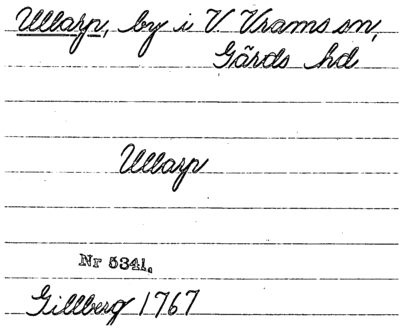 Ullarp, by i V. Vrams sn,
Gärds hd
Ullarp
Nr 5341.
Gillberg 1767